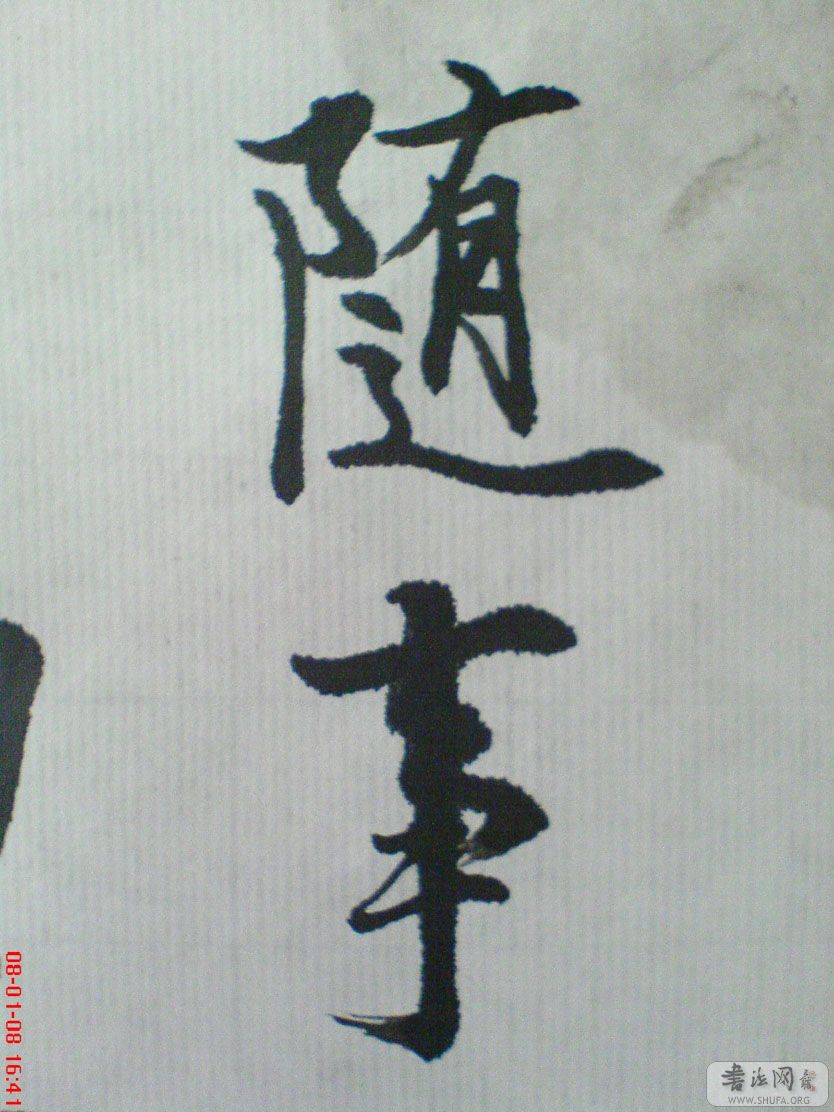 随事
08-01-08 16:41
书法网
WWW.SHUFA.ORG